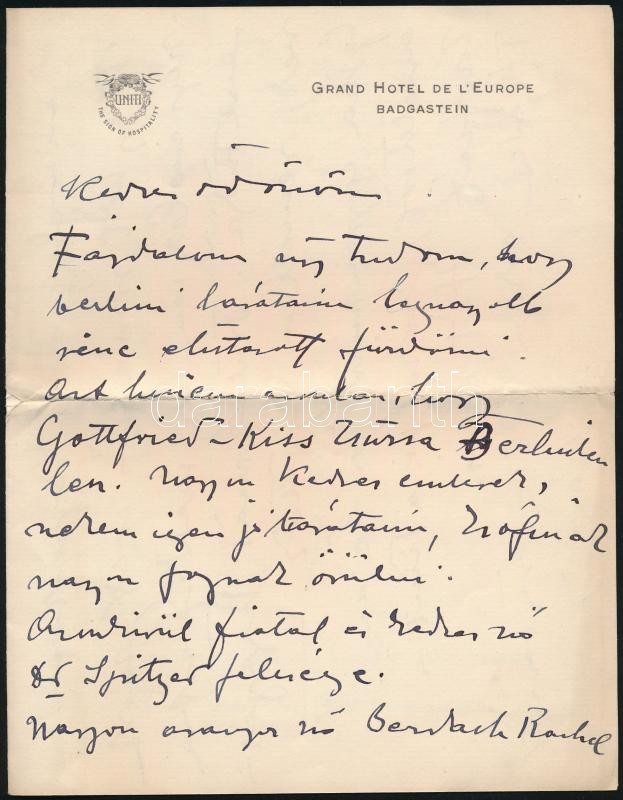 UNITI
THE SIGN OF HOSPITALITY
GRAND HOTEL DE L'EUROPE
BADGASTEIN
Kedves Ödönöm
Fájdalom úgy tudom, hogy
berlini barátaim legnagyobb
része elutazott fürdőzni.
Azt hiszem azonban, hogy
darabanth
Gottfried-Kiss Nussa Berlinben
lesz. Nagyon kedves emberek,
nekem igen jó barátaim, Zsófinak
nagyon fognak örülni.
Azonkivül fiatal és kedves nő
Dr Spitzer felesége.
Nagyon aranyos nő Berdach Rachel